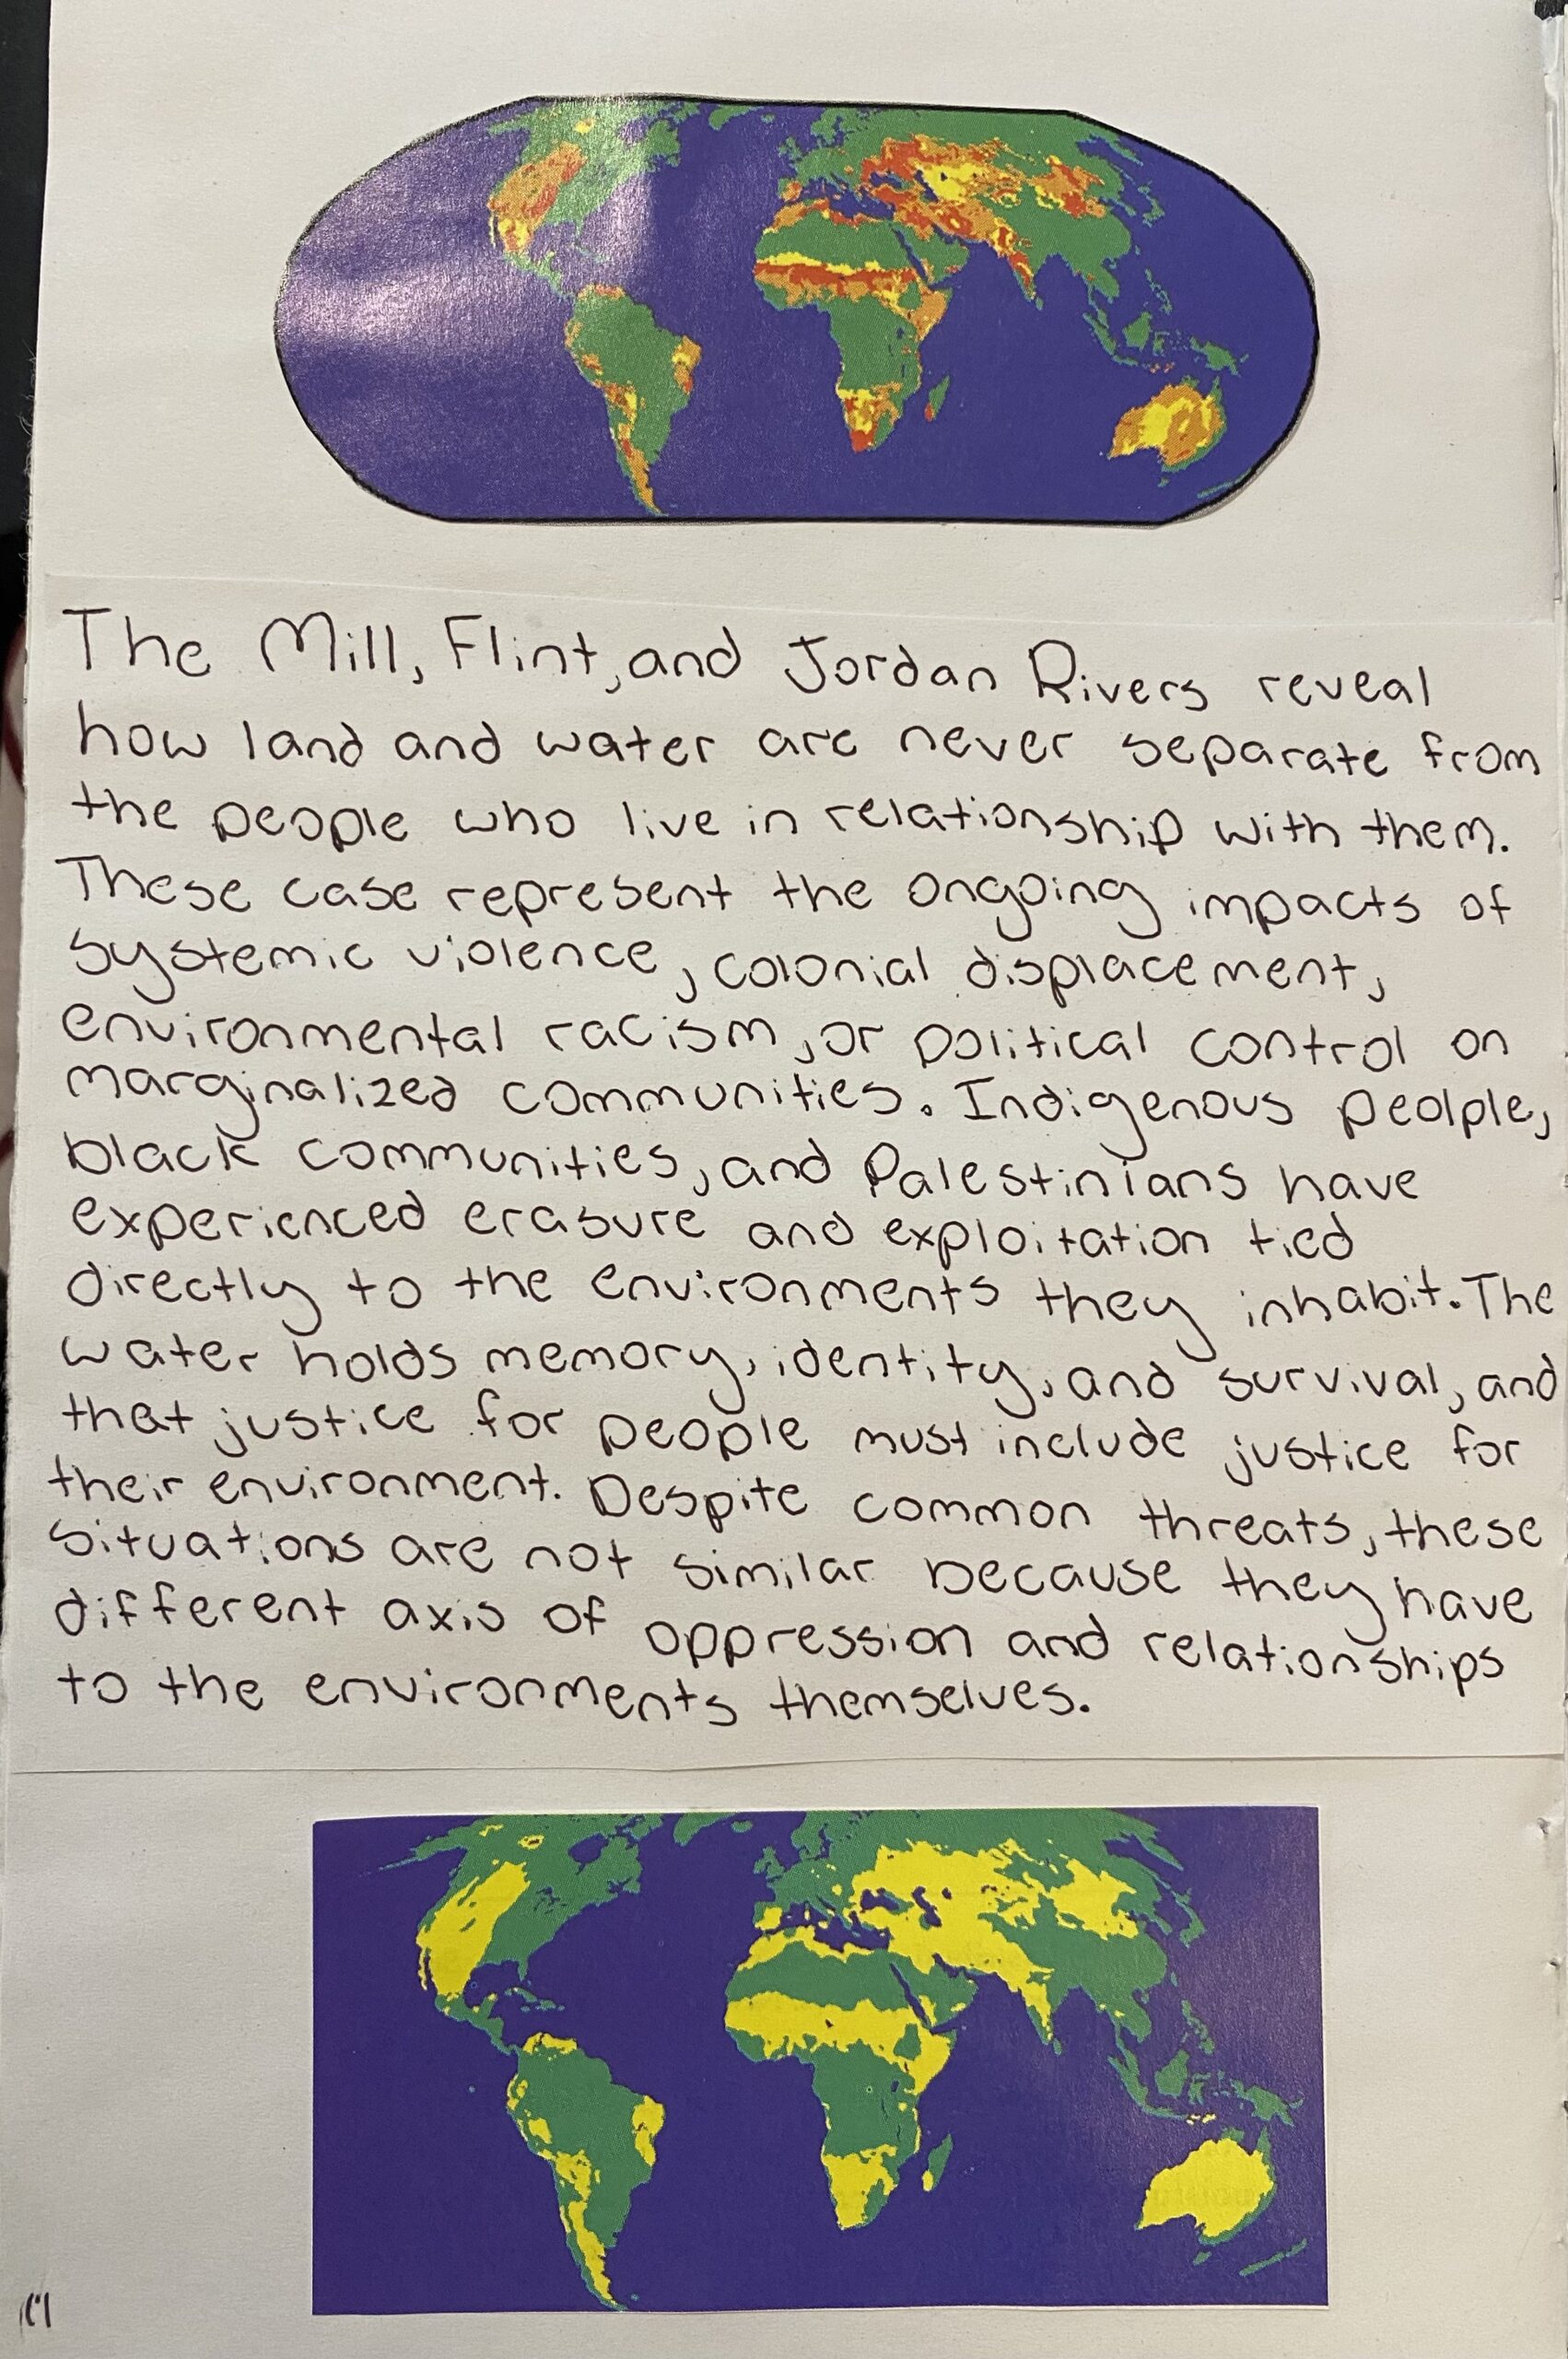 The Mill, Flint, and Jordan Rivers reveal
how land and water are never separate from
the people who live in relationship with them.
These case represent the ongoing impacts of
systemic violence, colonial displacement,
environmental racism, or political control on
marginalized communities. Indigenous peolple,
black communities, and Palestinians have
experienced erasure and exploitation tied
directly to the environments they inhabit. The
water holds memory, identity, and survival, and
that justice for people must include justice for
their environment. Despite common threats, these
situations are not similar because they have
different axis of oppression and relationships
to the environments themselves.